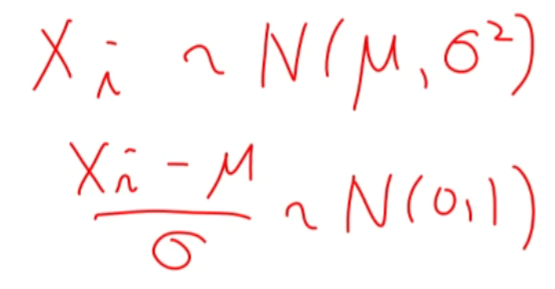 Xᵢ ~ N(μ, σ²)
(Xᵢ - μ)/σ ~ N(0,1)